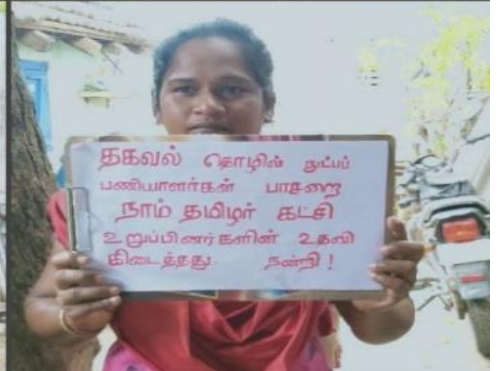 தகவல் தொழில் நுட்பப்
பணியாளர்கள் பாசறை
நாம் தமிழர் கட்சி
உறுப்பினர்களின் உதவி
கிடைத்தது. நன்றி!